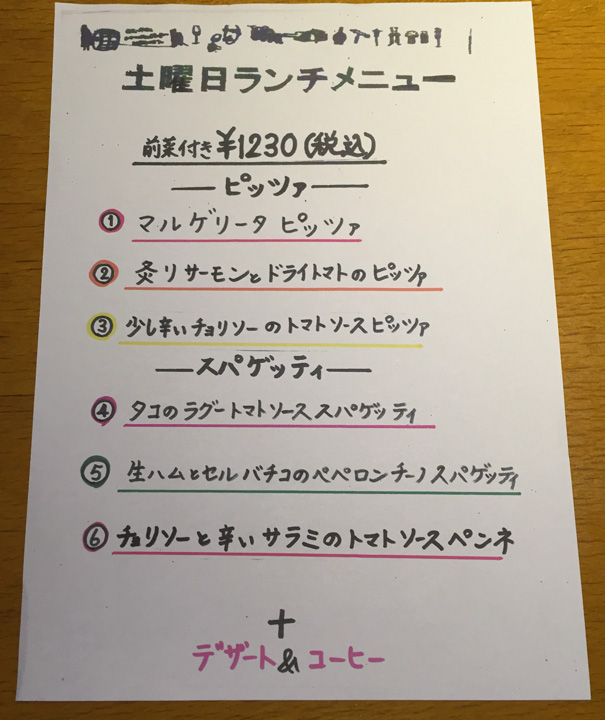 土曜日ランチメニュー
前菜付き ¥1230(税込)
ピッツァ
① マルゲリータ ピッツァ
② 炙りサーモンとドライトマトのピッツァ
③ 少し辛いチョリソーのトマトソースピッツァ
スパゲッティ
④ タコのラグートマトソーススパゲッティ
⑤ 生ハムとセルバチコのペペロンチーノスパゲッティ
⑥ チョリソーと辛いサラミのトマトソースペンネ
+
デザート&コーヒー